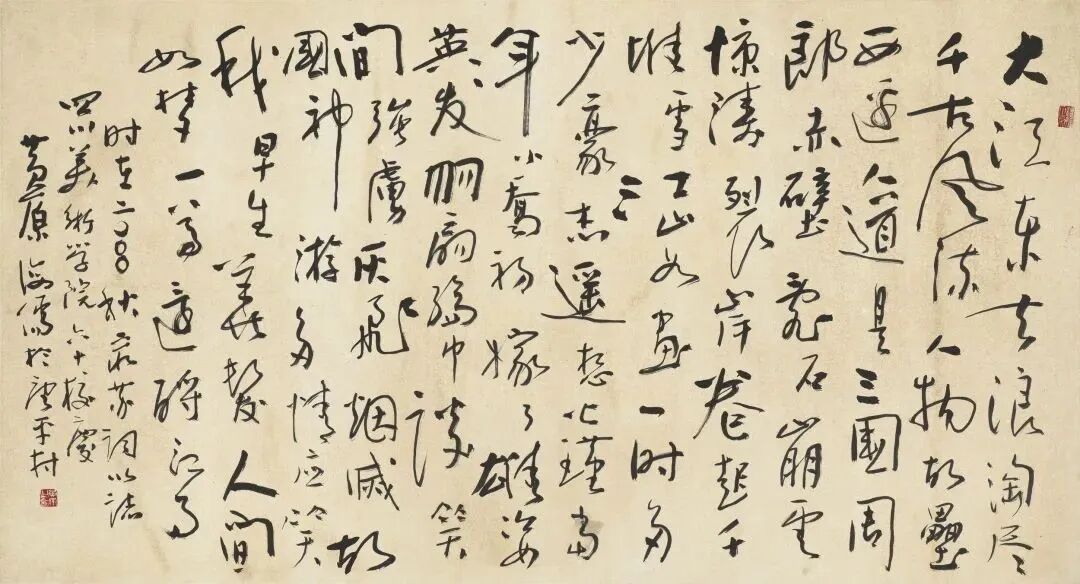 大江东去浪淘尽
千古风流人物故壘
西边人道是三國周
郎赤壁乱石崩雲
惊涛裂岸卷起千
堆雪江山如画一时多
少豪杰遥想公瑾当
年小喬初嫁了雄姿
英发羽扇綸巾谈笑
间强虜灰飞烟滅故
國神游多情应笑
我早生华髮人间
如梦一尊还酹江月
时在二〇〇〇秋录苏词以誌
四川美術学院六十校慶
黄原